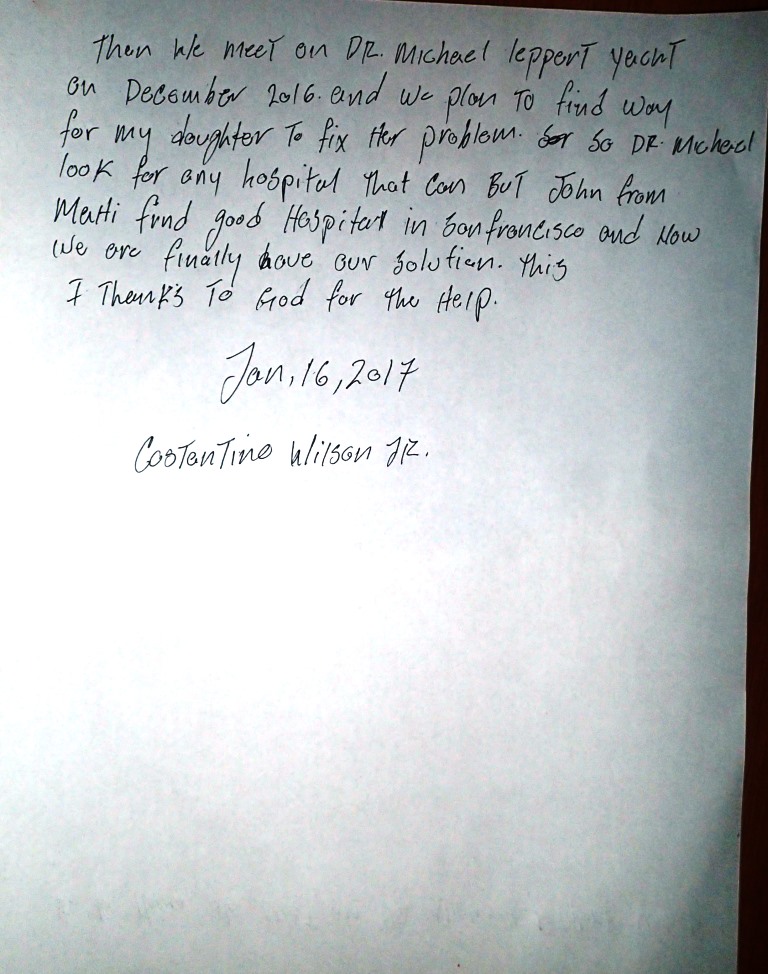 Then We meet on DR. Michael leppert yacht
on December 2016. and we plan To find way
for my doughter To fix Her problem. So DR. Michael
look for any hospital That can But John from
find good Hospital in Sanfrancisco and Now
We are finally have our solution. this
I Thanks To God for the Help.
Jan, 16, 2017
Costantino Wilson JR.